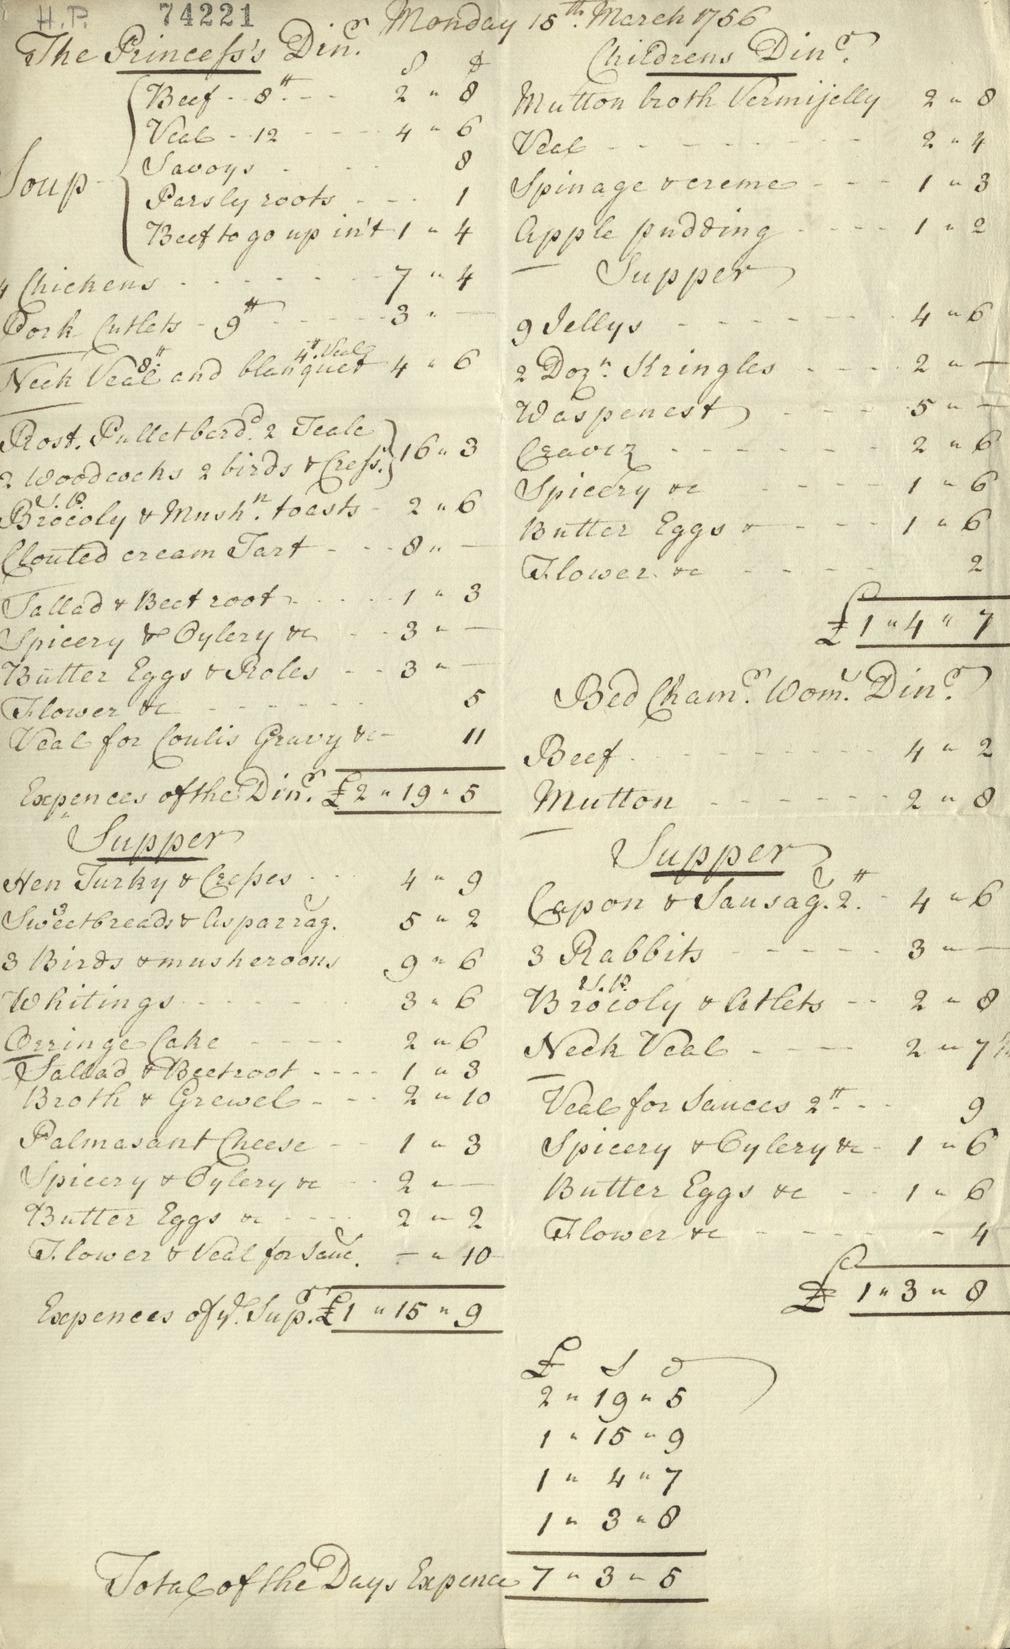 H.P. 74221 Monday 15th. March 1756
The Princess's Dinr.
s d
Soup
Beef - 8tt. - 2 " 8
Veal - 12 - 4 " 6
Savoys - 8
Parsly roots - 1
Beef to go up in't 1 " 4
4 Chickens - 7 " 4
Pork Cutlets - 9tt - 3 " —
Neck Veal 8tt and blanquet 4tt Veal 4 " 6
Rost. Pullet bard. 2 Teale
2 Woodcocks 2 birds & Cress. 16 " 3
Brocoly & Mushn. toasts - 2 " 6
Clouted cream Tart - 8 " —
Sallad & Beet root - 1 " 3
Spicery & Oylery &c - 3 " —
Butter Eggs & Roles - 3 " —
Flower &c - 5
Veal for Coulis Gravy &c - 11
Expences of the Dinr. £2 " 19 " 5
Supper
Hen Turky & Cresses - 4 " 9
Sweetbreads & Asparrag. 5 " 2
3 Birds & musheroons 9 " 6
Whitings - 3 " 6
Orringe Cake - 2 " 6
Sallad & Beetroot - 1 " 3
Broth & Grewel - 2 " 10
Palmasant Cheese - 1 " 3
Spicery & Oylery &c - 2 " —
Butter Eggs &c - 2 " 2
Flower & Veal for Sauc. — " 10
Expences of ye. Supr. £1 " 15 " 9
Childrens Dinr.
Mutton broth Vermijelly 2 " 8
Veal - 2 " 4
Spinage & creme - 1 " 3
Apple pudding - 1 " 2
Supper
9 Jellys - 4 " 6
2 Dozn. Kringles - 2 " —
Waspenest - 5 " —
2 " 6
Spicery &c - 1 " 6
Butter Eggs & - 1 " 6
Flower &c - 2
£1 " 4 " 7
Bed Chamr. Wom. Dinr.
Beef - 4 " 2
Mutton - 2 " 8
Supper
Capon & Sausag. 2tt. - 4 " 6
3 Rabbits - 3 " —
Brocoly & Atlets - 2 " 8
Neck Veal - 2 " 7½
Veal for Sauces 2tt. - 9
Spicery & Oylery &c - 1 " 6
Butter Eggs &c - 1 " 6
Flower &c - 4
£ 1 " 3 " 8
£ s d
2 " 19 " 5
1 " 15 " 9
1 " 4 " 7
1 " 3 " 8
Total of the Days Expence 7 " 3 " 5